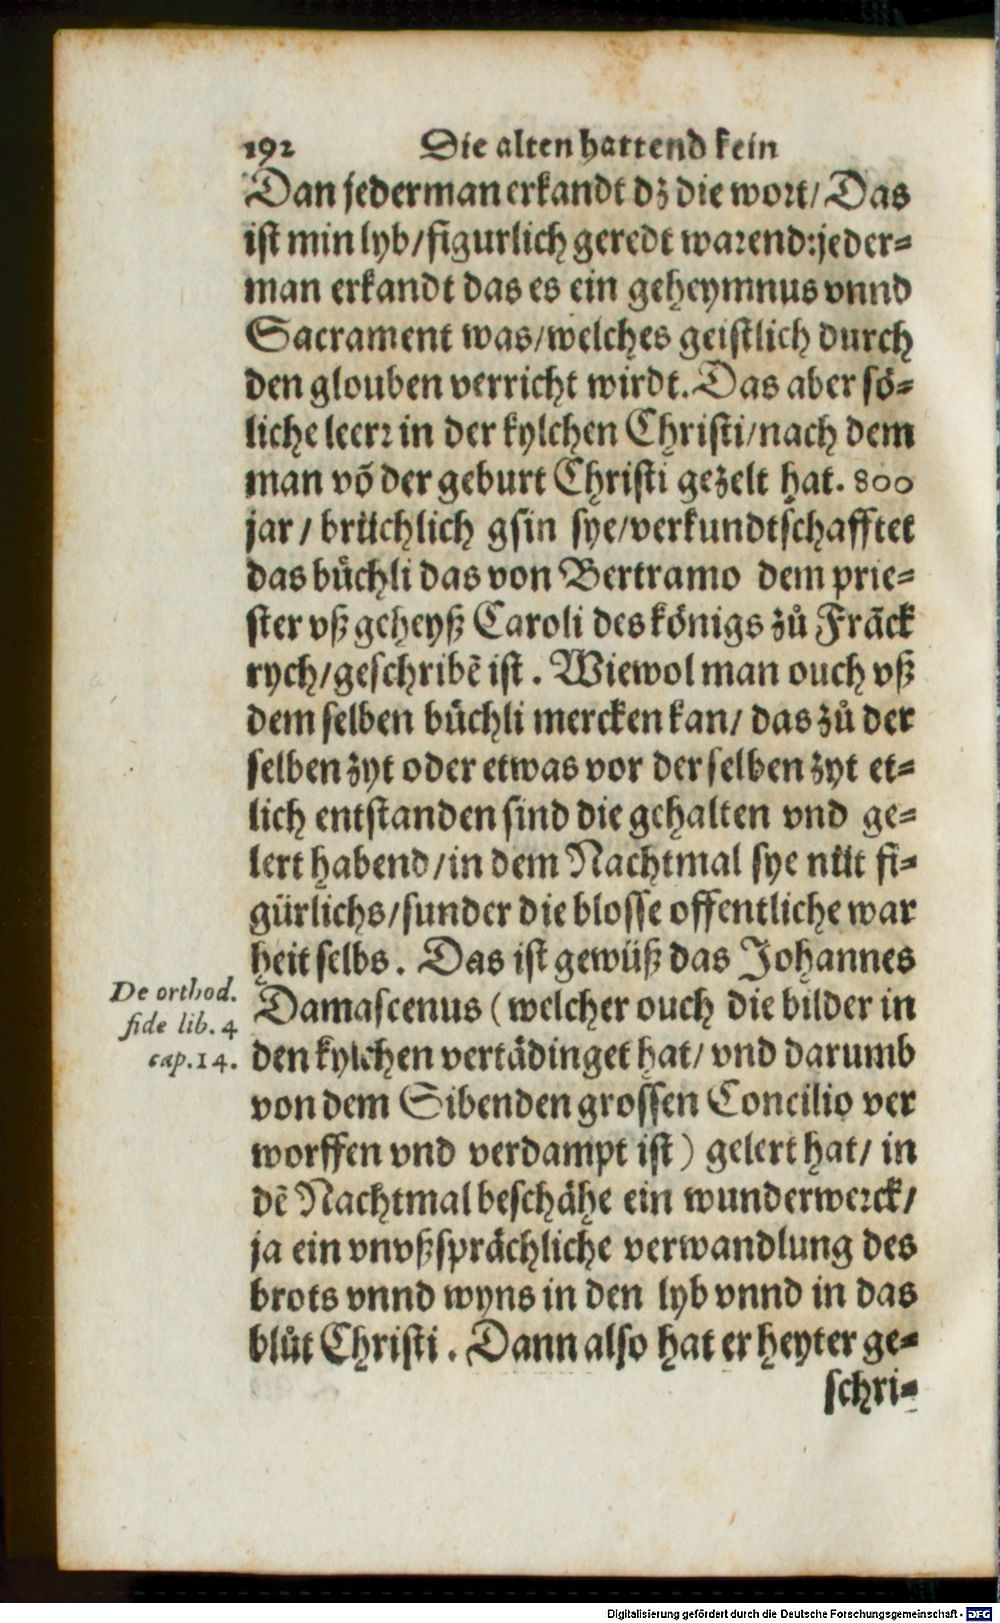 192 Die alten hattend kein
Dan jederman erkandt dz die wort/ Das
ist min lyb/figurlich geredt warend: jeder-
man erkandt das es ein geheymnus vnnd
Sacrament was/welches geistlich durch
den glouben verricht wirdt. Das aber sö-
liche leer: in der kylchen Christi/nach dem
man võ der geburt Christi gezelt hat. 800
jar / brüchlich gsin sye/verkundtschafftet
das bůchli das von Bertramo dem prie-
ster vß geheyß Caroli des königs zů Frãck
rych/geschribẽ ist. Wiewol man ouch vß
dem selben bůchli mercken kan/ das zů der
selben zyt oder etwas vor der selben zyt et-
lich entstanden sind die gehalten vnd ge-
lert habend/in dem Nachtmal sye nüt fi-
gürlichs/sunder die blosse offentliche war
heit selbs. Das ist gewüß das Johannes
De orthod.
fide lib. 4
cap. 14.
Damascenus (welcher ouch die bilder in
den kylchen vertädinget hat/ vnd darumb
von dem Sibenden grossen Concilio ver
worffen vnd verdampt ist) gelert hat/ in
dẽ Nachtmal beschähe ein wunderwerck/
ja ein vnvßsprächliche verwandlung des
brots vnnd wyns in den lyb vnnd in das
blůt Christi. Dann also hat er heyter ge-
schri-
Digitalisierung gefördert durch die Deutsche Forschungsgemeinschaft - DFG